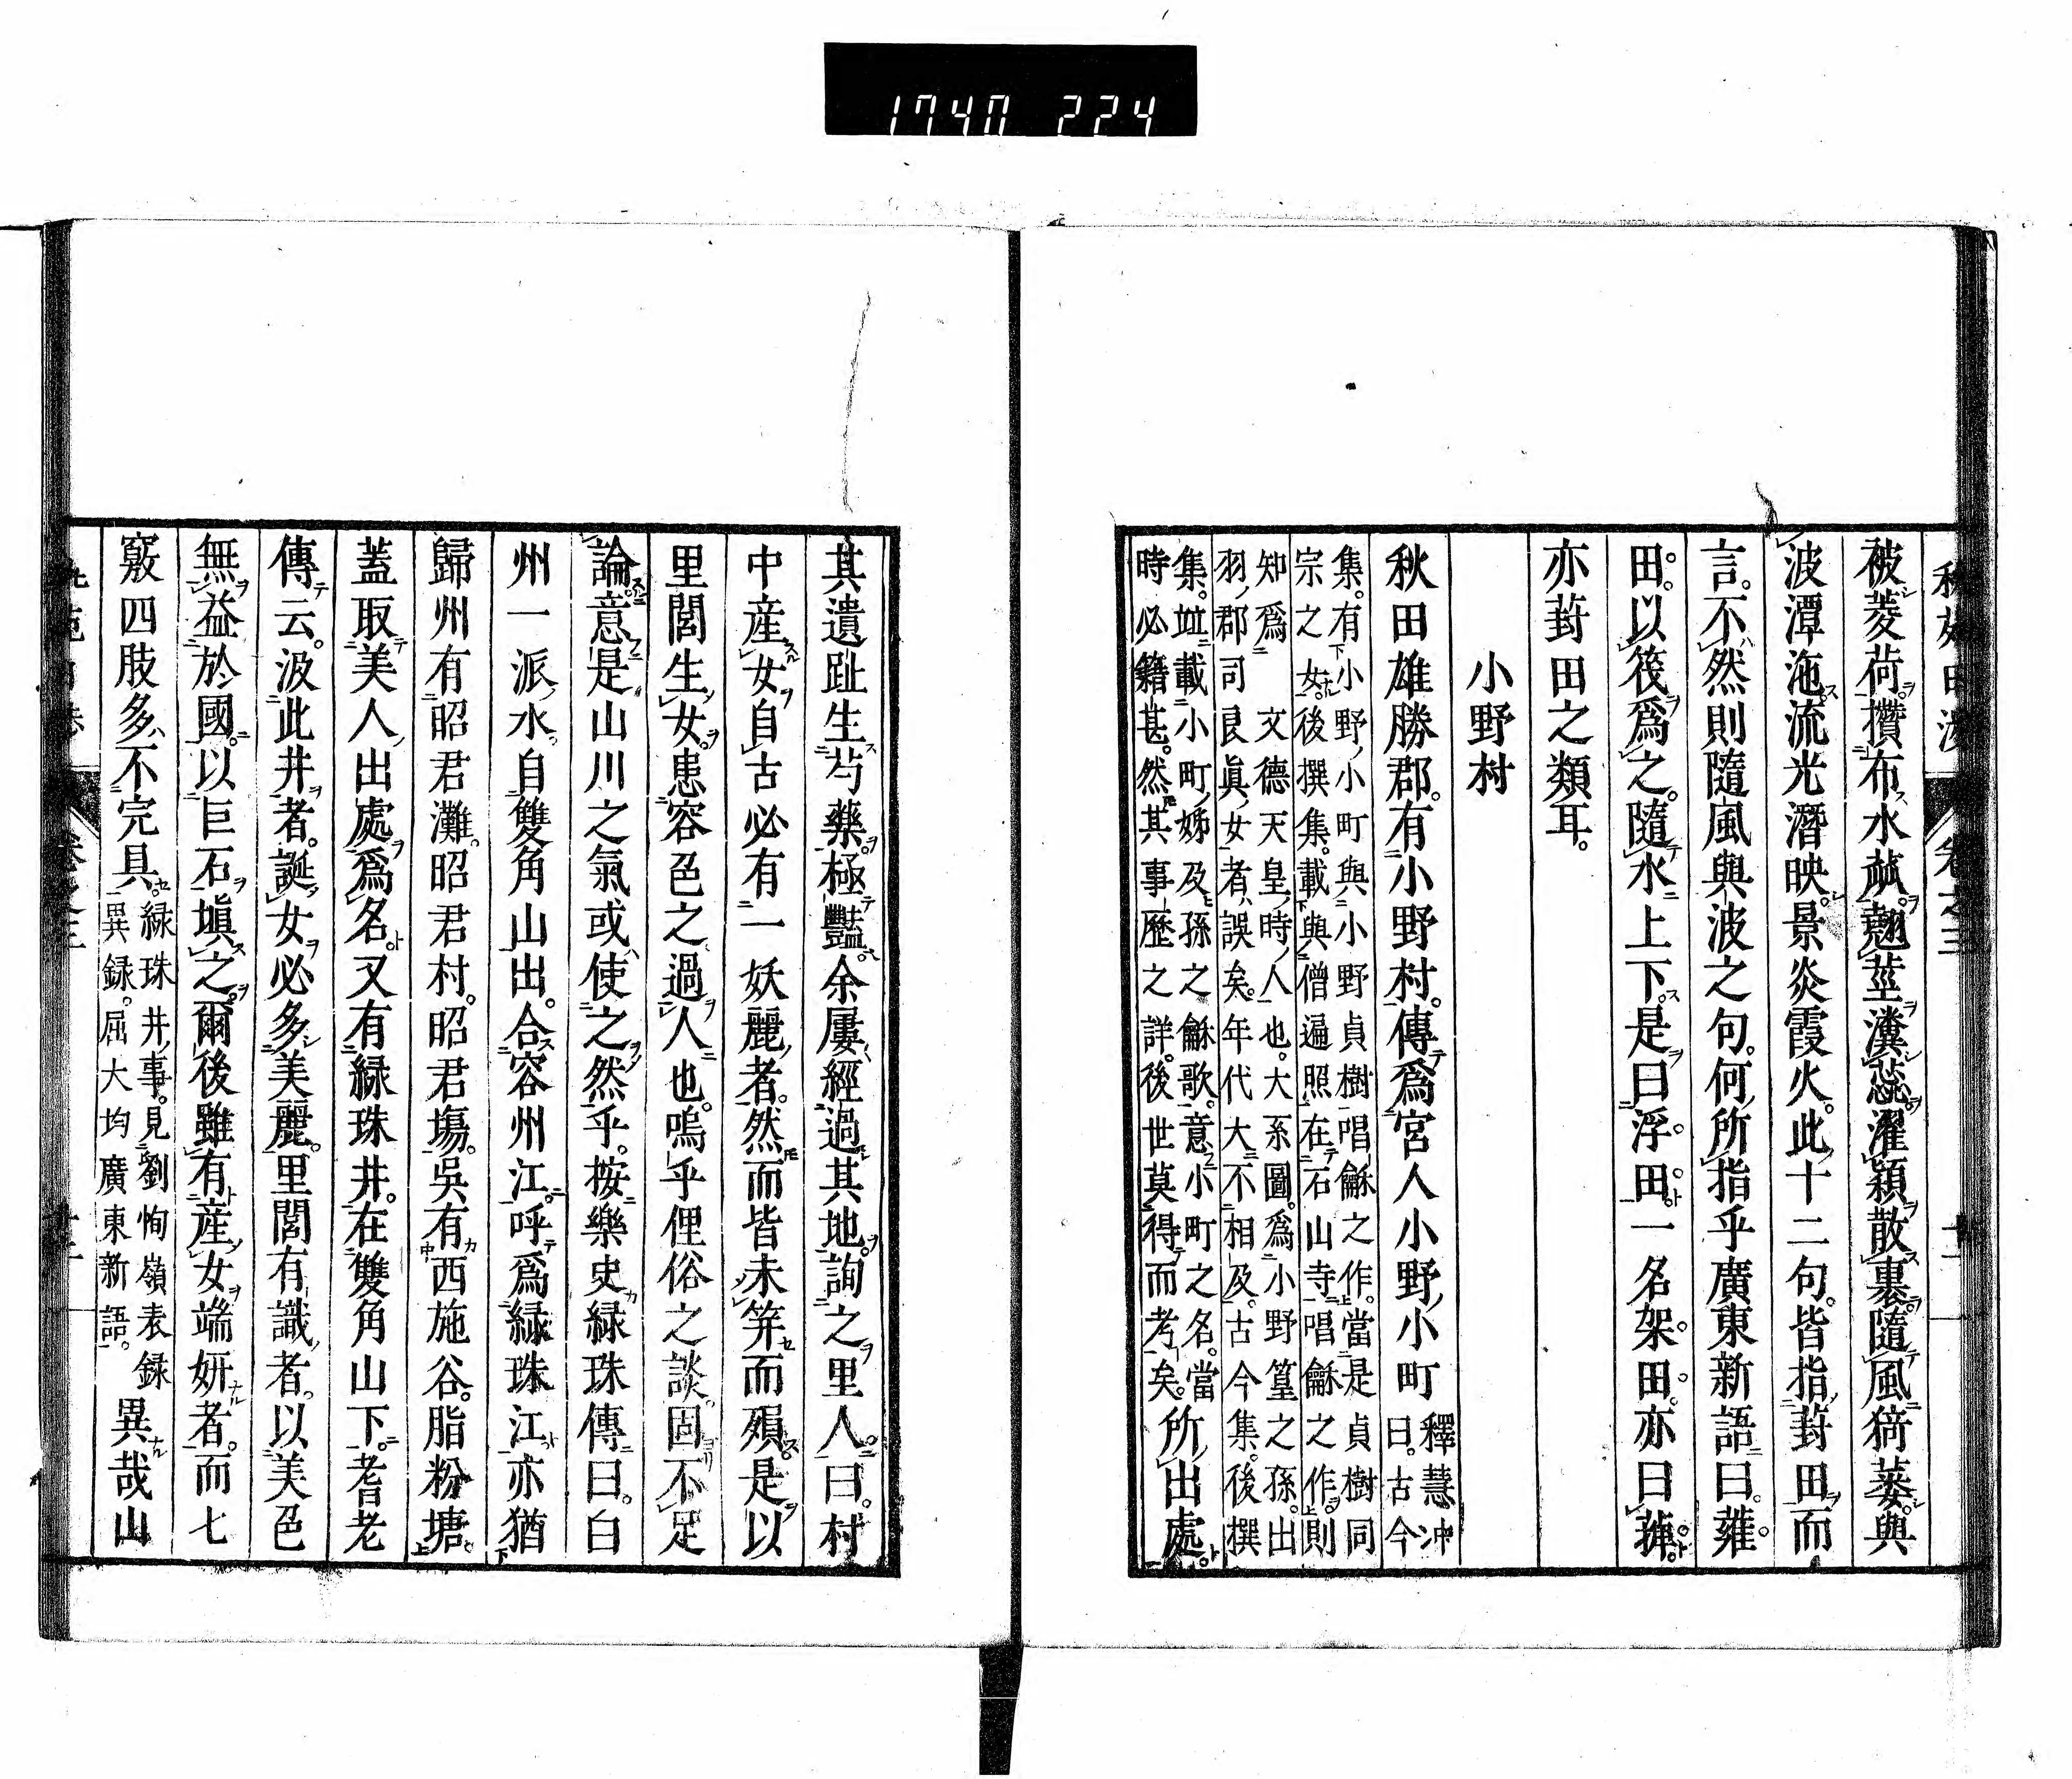 1740 224
被菱荷。攢布水蓏。翹莖瀵蕊。濯穎散裏。隨風猗萎。與
波潭沲。流光潛映。景炎霞火。此十二句。皆指葑田而
言。不然則隨風與波之句。何所指乎。廣東新語曰。蕹
田。以筏爲之。隨水上下。是曰浮田。一名架田。亦曰
亦葑田之類耳。
小野村
秋田雄勝郡。有小野村。傳爲宮人小野小町
釋慧冲
曰。古今
集。有小野小町與小野貞樹唱龢之作。當是貞樹同
宗之女。後撰集。載與僧遍照在石山寺唱龢之作。則
知爲 文德天皇時人也。大系圖。爲小野篁之孫。出
羽郡司良眞女者誤矣。年代大不相及。古今集。後撰
集。竝載小町姊及孫之龢歌。意小町之名。當
時必籍甚。然其事歷之詳。後世莫得而考矣。
所出處。
其遺趾生芍藥。極豔。余屢經過其地。詢之里人。曰。村
中產女。自古必有一妖麗者。然而皆未笄而殞。是以
里閭生女。患容色之過人也。嗚乎俚俗之談。固不足
論。意是山川之氣。或使之然乎。按樂史緑珠傳曰。白
州一派水。自雙角山出。合容州江。呼爲緑珠江。亦猶
歸州有昭君灘。昭君村。昭君塲。吳有西施谷。脂粉塘。
蓋取美人出處爲名。又有緑珠井。在雙角山下。耆老
傳云。汲此井者。誕女必多美麗。里閭有識者。以美色
無益於國。以巨石塡之。爾後雖有產女端妍者。而七
竅四肢多不完具。
緑珠井事。見劉恂嶺表録
異録。屈大均廣東新語。
異哉山
卷之三